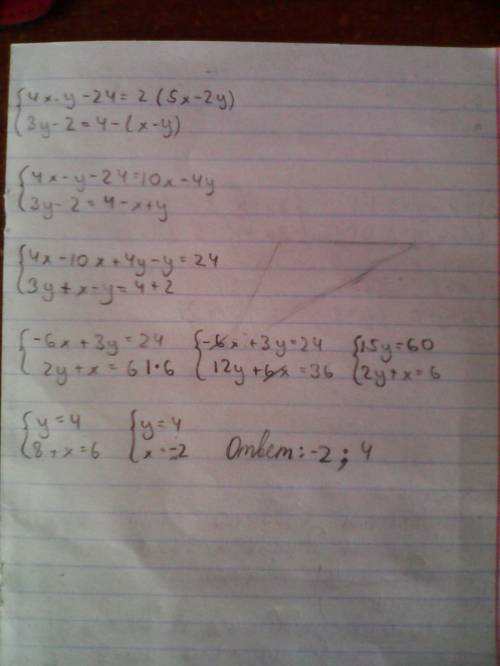 {4x-y-24=2(5x-2y)
{3y-2=4-(x-y)
{4x-y-24=10x-4y
{3y-2=4-x+y
{4x-10x+4y-y=24
{3y+x-y=4+2
{-6x+3y=24 {-6x+3y=24 {15y=60
{2y+x=6|·6 {12y+6x=36 {2y+x=6
{y=4 {y=4
{8+x=6 {x=-2 Ответ: -2; 4